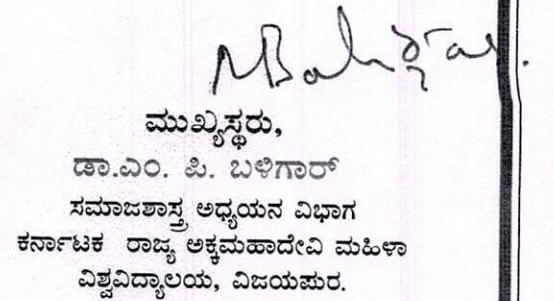 ಮುಖ್ಯಸ್ಥರು,
ಡಾ.ಎಂ. ಪಿ. ಬಳಿಗಾರ್
ಸಮಾಜಶಾಸ್ತ್ರ ಅಧ್ಯಯನ ವಿಭಾಗ
ಕರ್ನಾಟಕ ರಾಜ್ಯ ಅಕ್ಕಮಹಾದೇವಿ ಮಹಿಳಾ
ವಿಶ್ವವಿದ್ಯಾಲಯ, ವಿಜಯಪುರ.